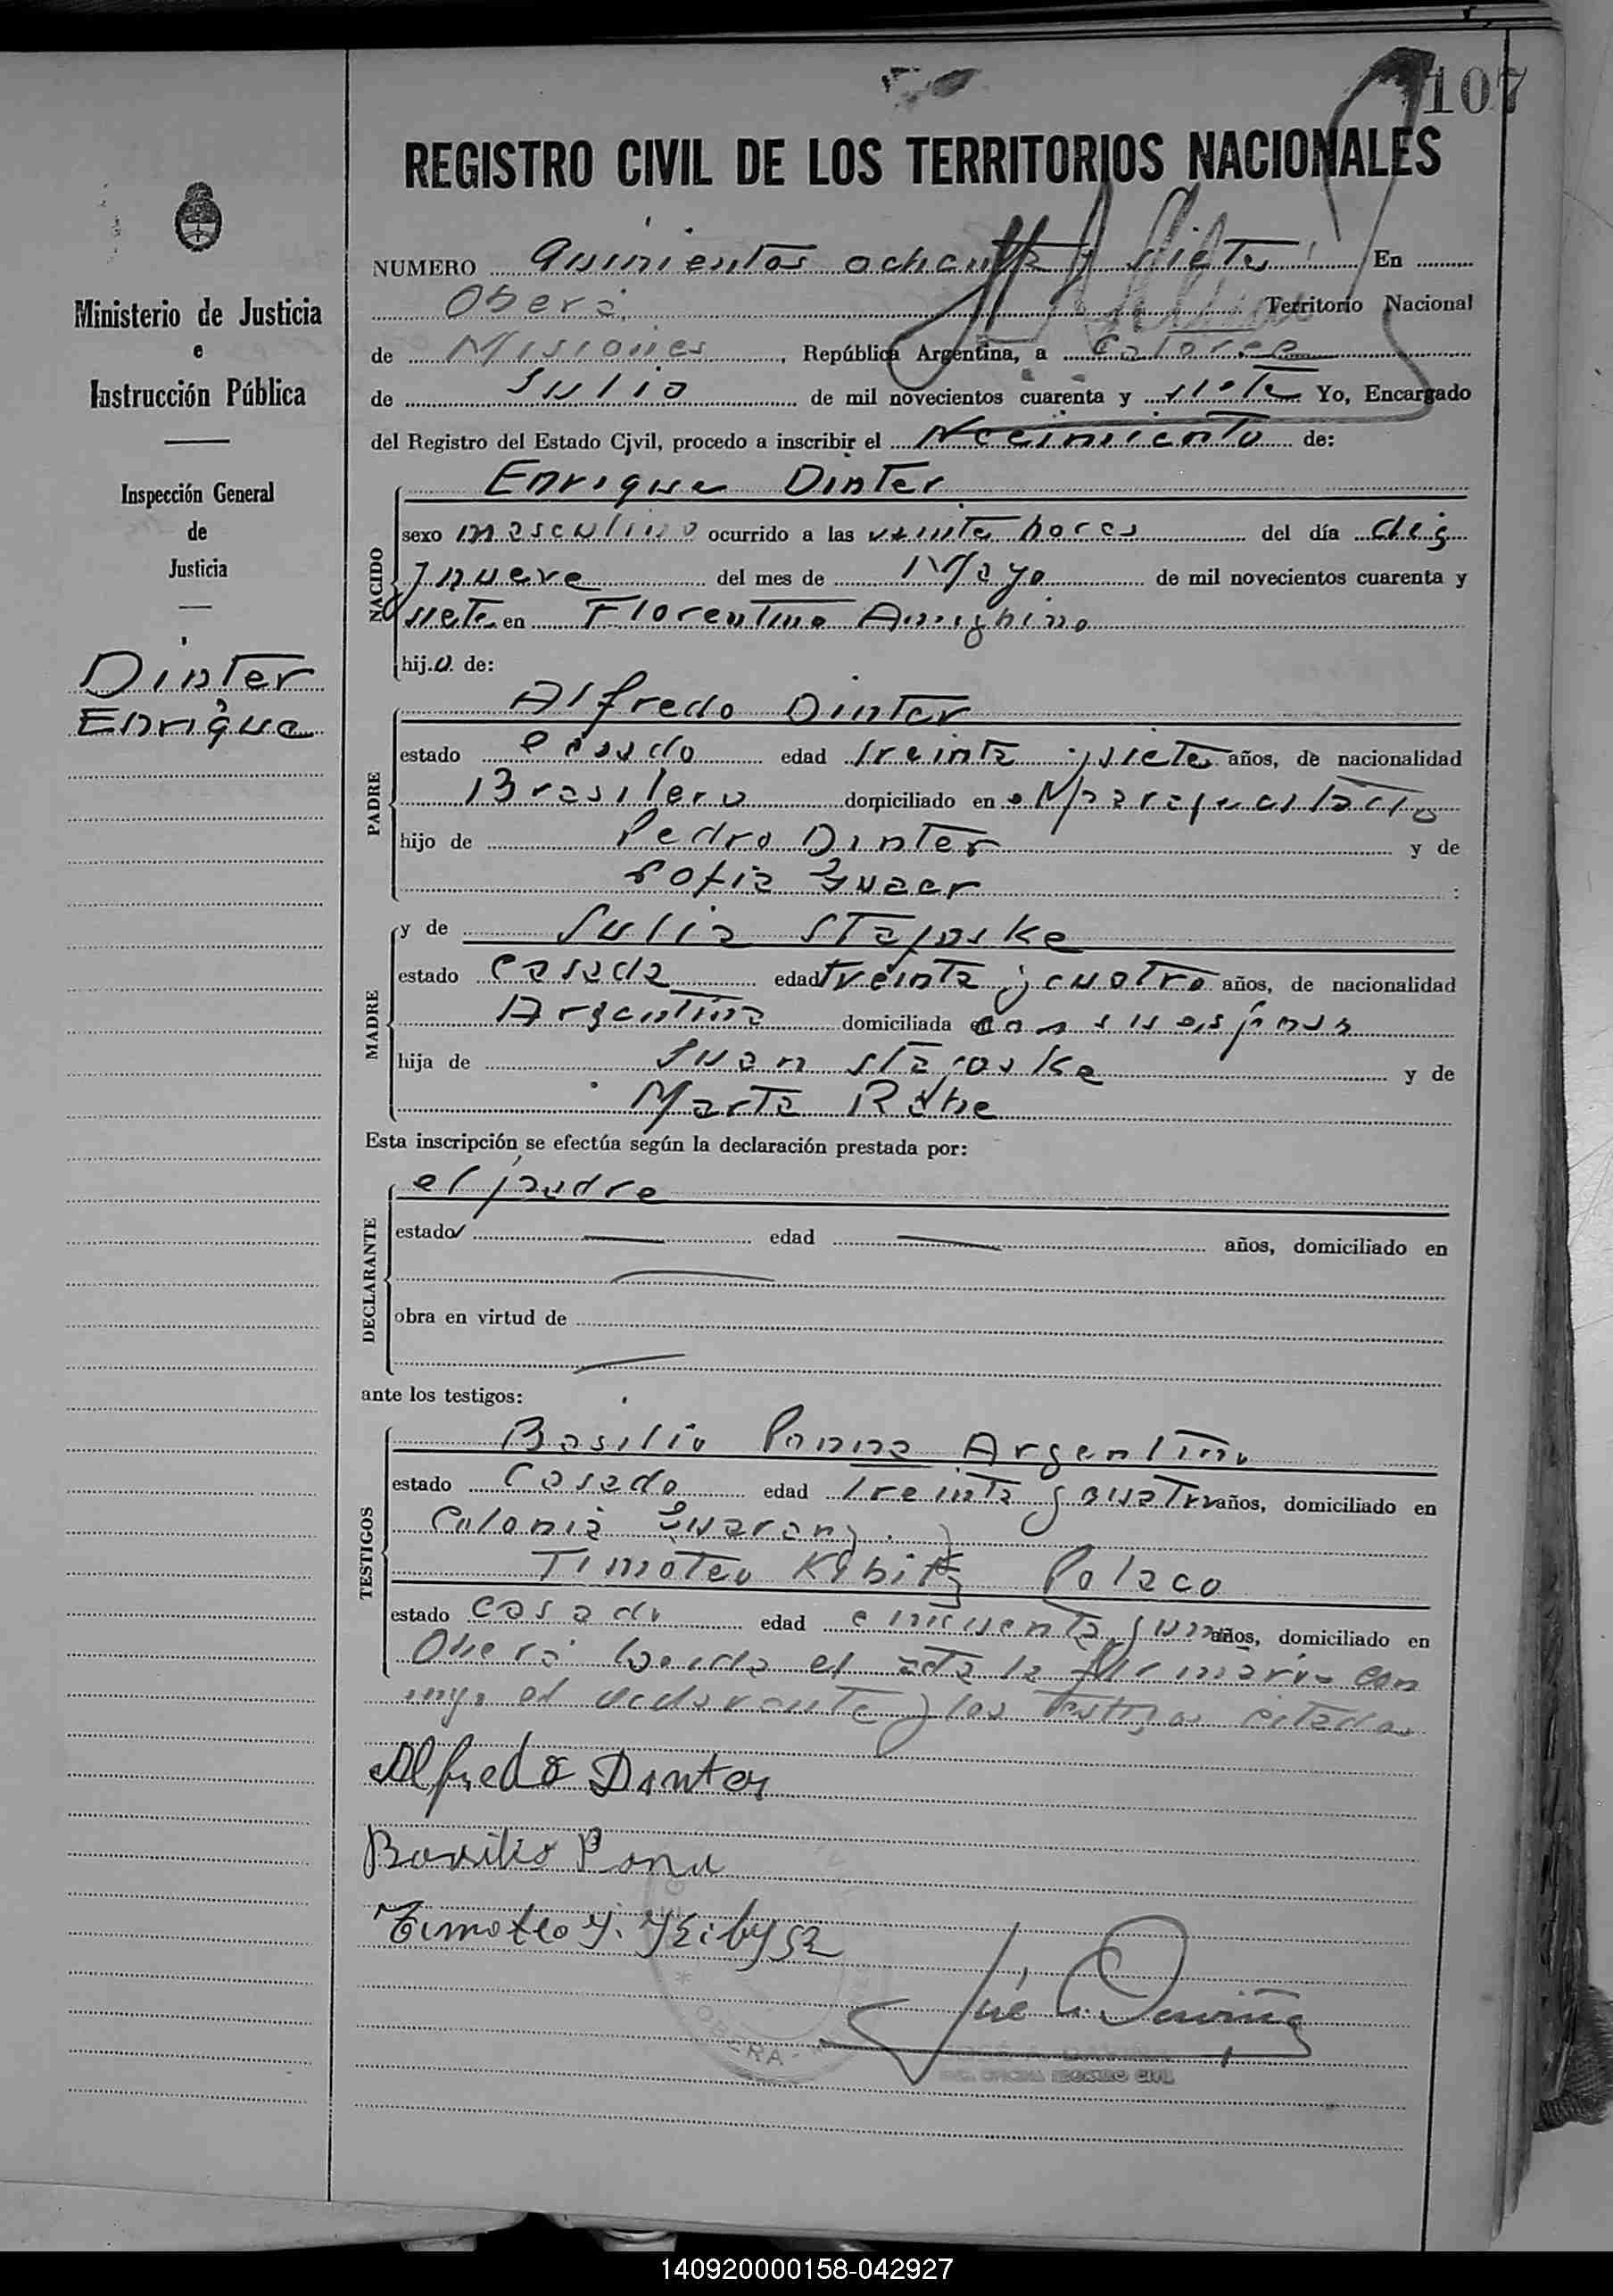 107
REGISTRO CIVIL DE LOS TERRITORIOS NACIONALES
NUMERO Quinientos ochenta y siete En
Oberá Territorio Nacional
de Misiones, República Argentina, a Catorce
de Julio de mil novecientos cuarenta y siete Yo, Encargado
del Registro del Estado Civil, procedo a inscribir el Nacimiento de:
Ministerio de Justicia
e
Instrucción Pública
Inspección General
de
Justicia
Dinter
Enrique
NACIDO
Enrique Dinter
sexo masculino ocurrido a las veinte horas del día diez
y nueve del mes de Mayo de mil novecientos cuarenta y
siete en Florentino Ameghino
hijo de:
PADRE
Alfredo Dinter
estado casado edad treinta y siete años, de nacionalidad
Brasilero domiciliado en
hijo de Pedro Dinter y de
Sofia
MADRE
y de Julia
estado casada edad treinta y cuatro años, de nacionalidad
Argentina domiciliada con su esposo
hija de Juan y de
Marta
Esta inscripción se efectúa según la declaración prestada por:
DECLARANTE
el padre
estado edad años, domiciliado en
obra en virtud de
ante los testigos:
TESTIGOS
Basilio Panna Argentino
estado Casado edad treinta y cuatro años, domiciliado en
Colonia Guarany
Timoteo Polaco
estado casado edad cincuenta y un años, domiciliado en
Oberá Leida el acta la firmaron con
migo el declarante y los testigos citados
Alfredo Dinter
Basilio Pana
Timoteo J.
José A.
OBERA
REGISTRO CIVIL
140920000158-042927